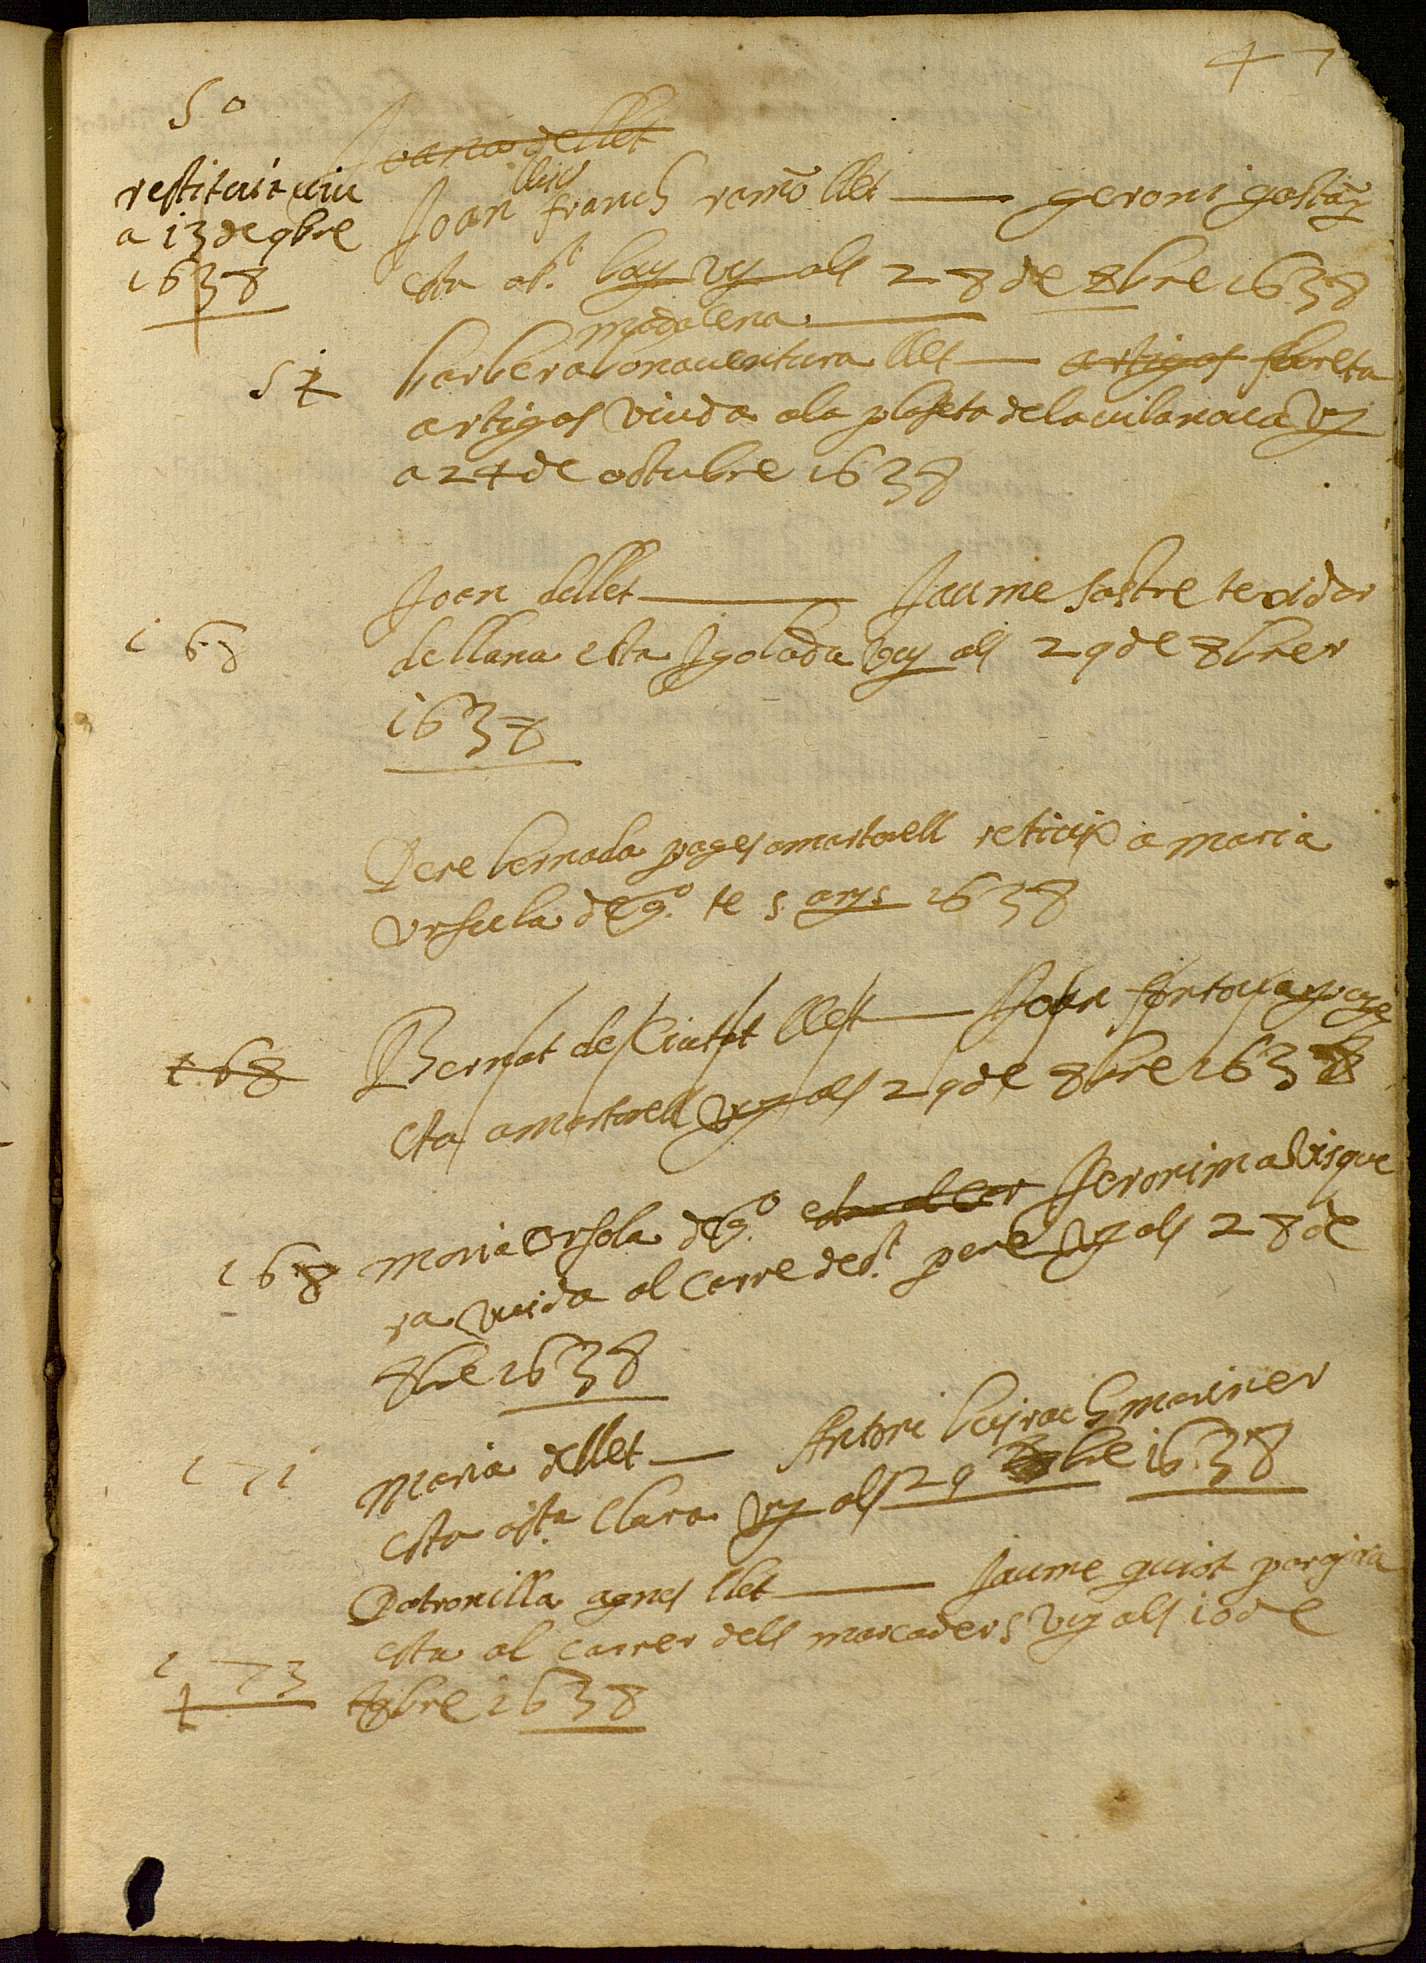 47
50
Joana de llet
restituit viu
a 13 de 9bre
1638
lluis
Joan franch ramo llet — geroni
esta a st. boy vy als 28 de 8bre 1638
madalena
51
barbera bonaventura llet — artigas
artigas viuda a la plaseta de la vilanova vy
a 24 de octubre 1638
Joan de llet — Jaume sastre texidor
168
de llana esta Igolada vuy als 29 de 8brer
1638
Pere bernada pages a martorell a maria
ursula de go. te 5 anys 1638
168
Bernat de Ciutat llet — Joan pages
esta a martorell vuy als 29 de 8bre 1638
168
maria Orsola de go. Jeronima Visque
ra viuda al carre de st. pere vy als 28 de
8bre 1638
171
Maria de llet — Antoni mariner
esta a sta. Clara vy als 29 8bre 1638
Patronilla agnes llet — Jaume guiot
esta al carrer dels marcaders vuy als 10 de
173
8bre 1638